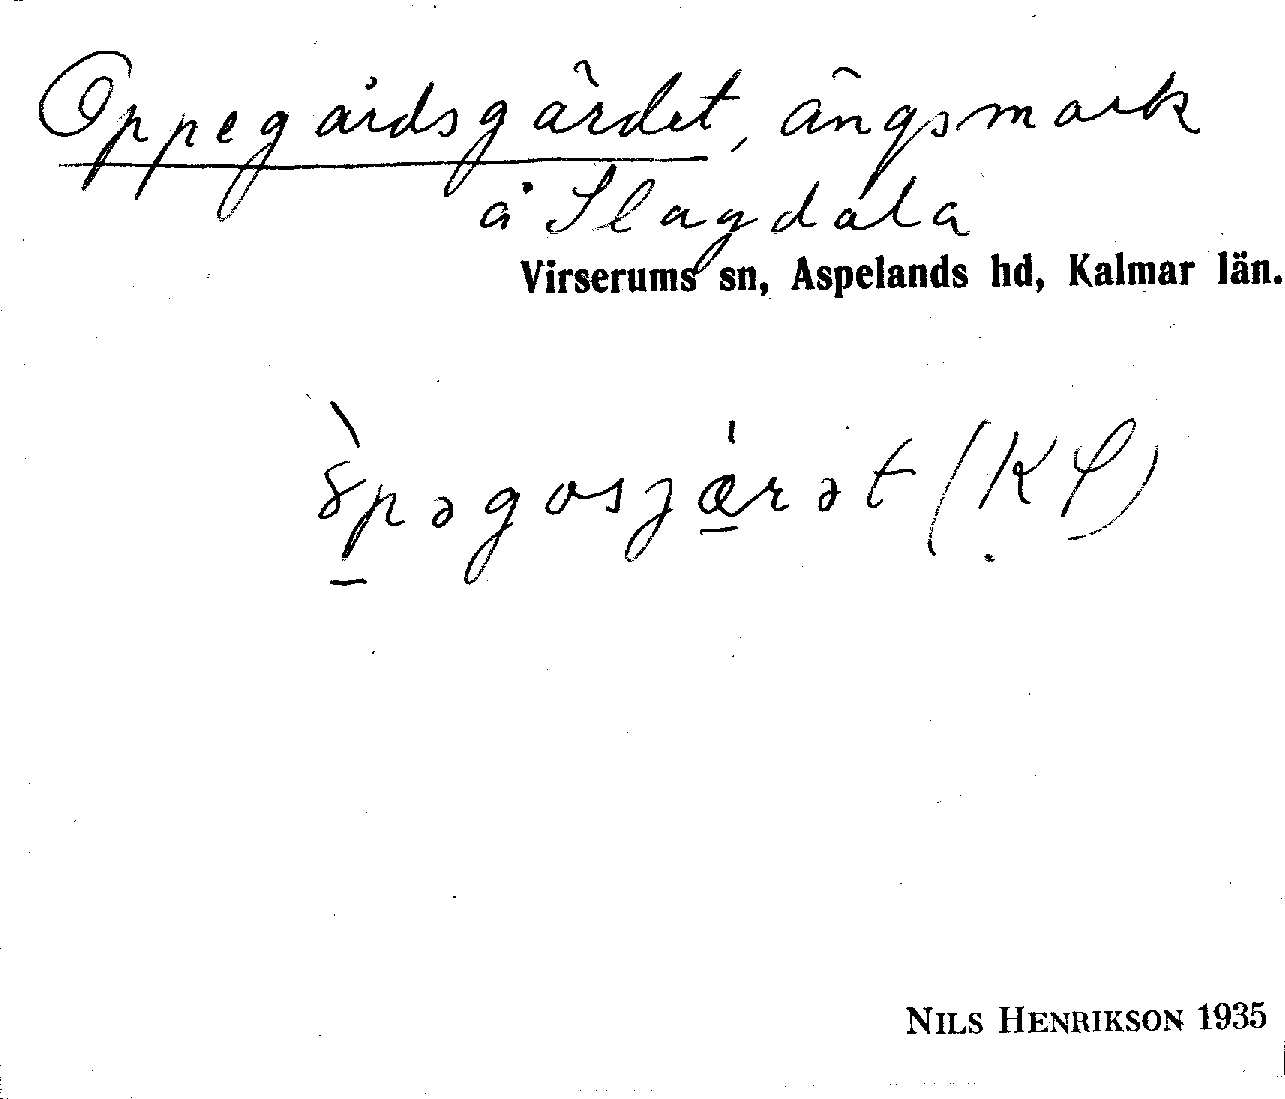 Oppegårdsgärdet, ängsmark
å Slagdala
Virserums sn, Aspelands hd, Kalmar län.
NILS HENRIKSON 1935